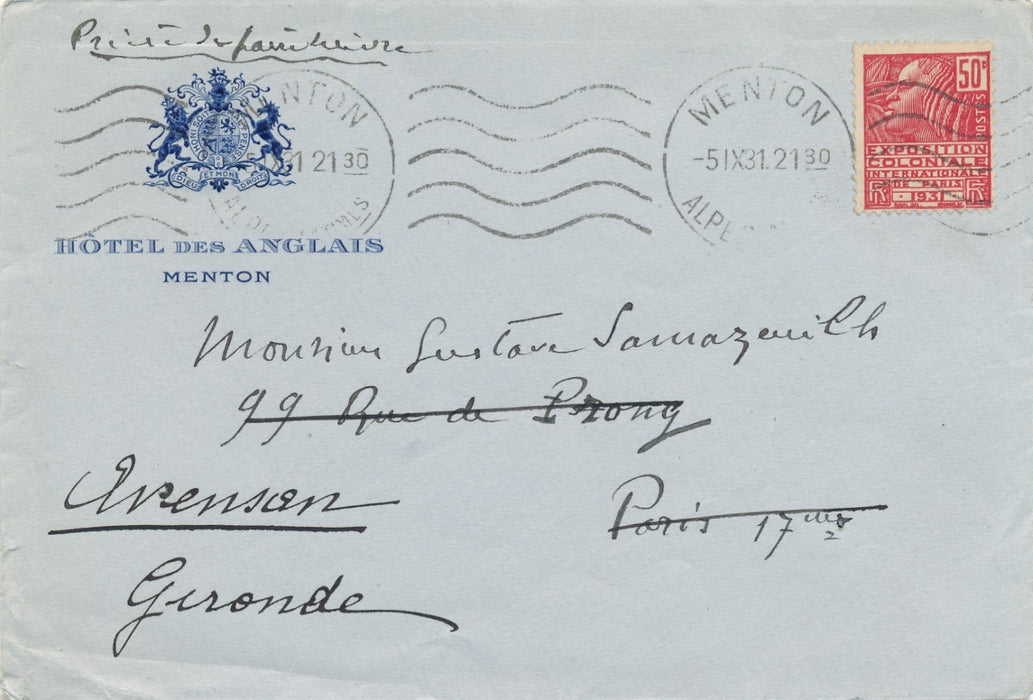 Prière de faire suivre
HONI SOIT QUI MAL Y PENSE
DIEU ET MON DROIT
HÔTEL DES ANGLAIS
MENTON
MENTON
-5 IX31.21 30
MENTON
-5 IX31.21 30
50c
POSTES
EXPOSITION
COLONIALE
INTERNATIONALE
DE PARIS
1931
Monsieur Gustave Samazeuilh
99 Rue de Prony
Paris 17me
Gironde